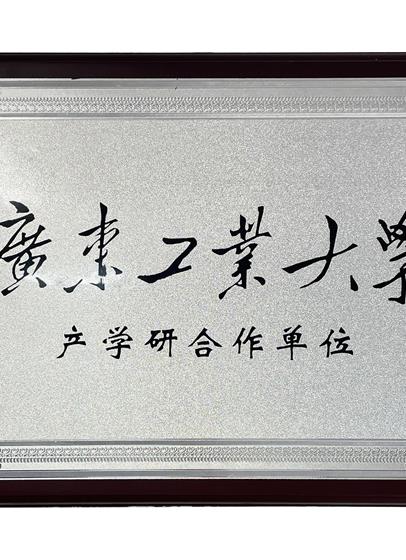 廣東工業大學
产学研合作单位